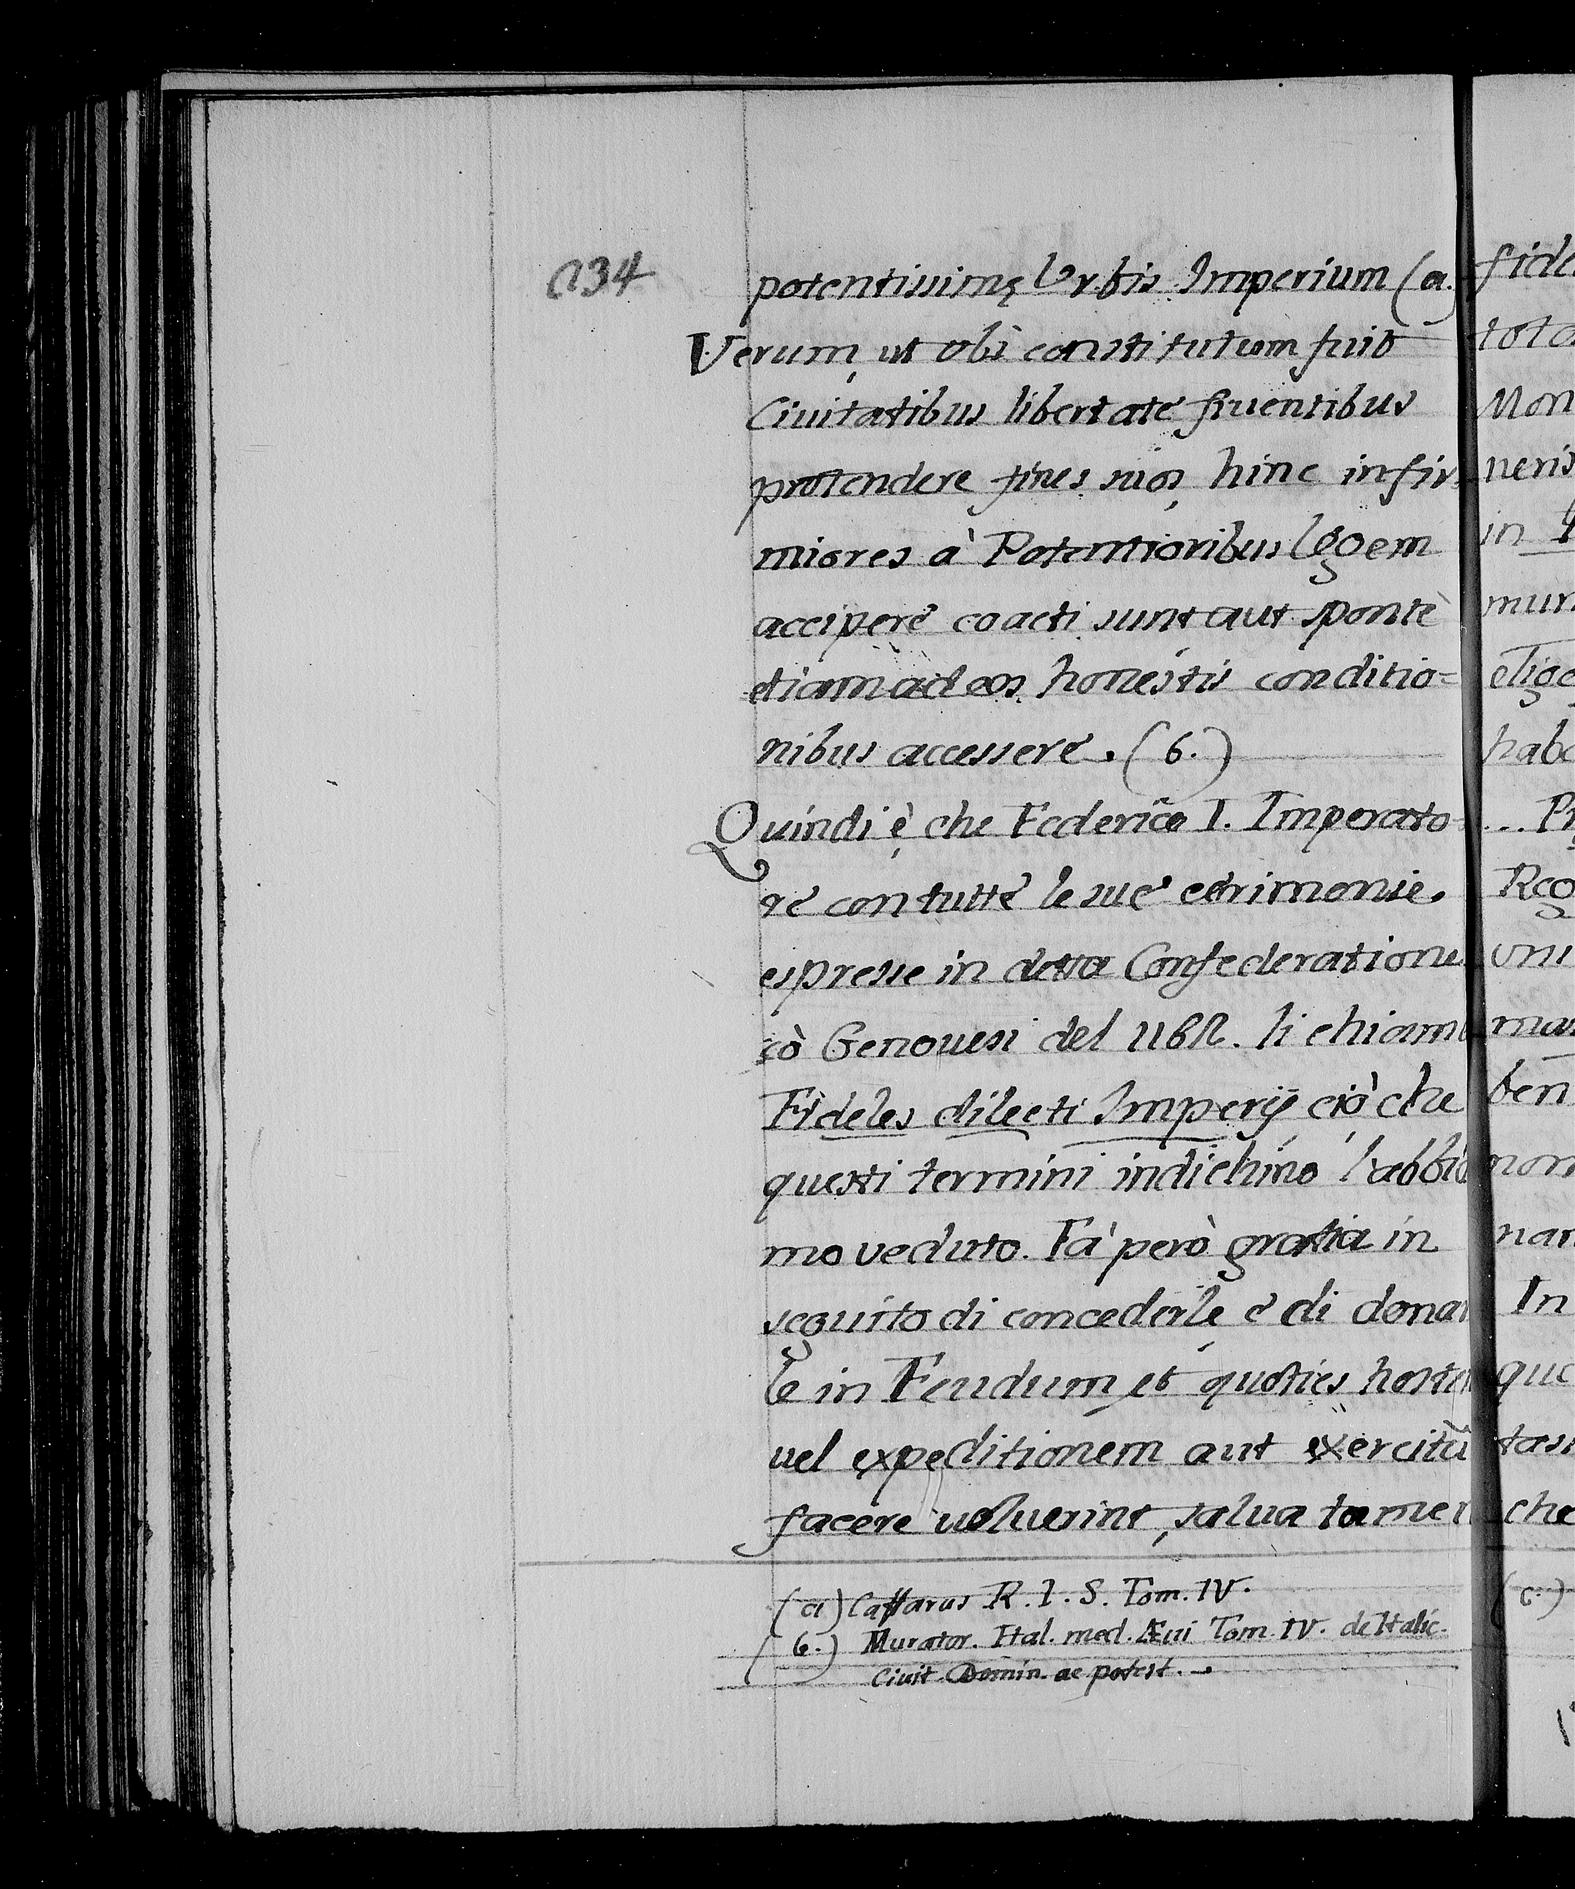 234
potentissimę Vrbis Imperium (a.)
Verum, ut obi constitutum fuit
Ciuitatibus libertate fruentibus
protendere fines suos, hinc infir
miores à Potentioribus legem
accipere coacti sunt aut sponte
etiam ad eos honestis conditio=
nibus accessere. (6.)
Quindi è, che Federico I. Imperato
re con tutte le sue cerimonie
espresse in detta Confederatione
cò Genouesi del 1162. li chiam
Fideles dilecti Imperij, ciò che
questi termini indichino l'abbia
mo veduto. Fà però gratia in
seguito di concederle, e di donar
le in Feudum, et quoties hostem
uel expeditionem aut exercitũ
facere uoluerint, salua tamen
(a) Caffarus R. I. S. Tom. IV.
(6.) Murator. Ital. med. Æui Tom. IV. de Italic.
Ciuit. Domin. ac potest.
fide
tota
Mon
neris
in
mun
elige
habe
... Pr
Reg
uni
mas
ben
non
nan
In
que
tas
che
(c.)